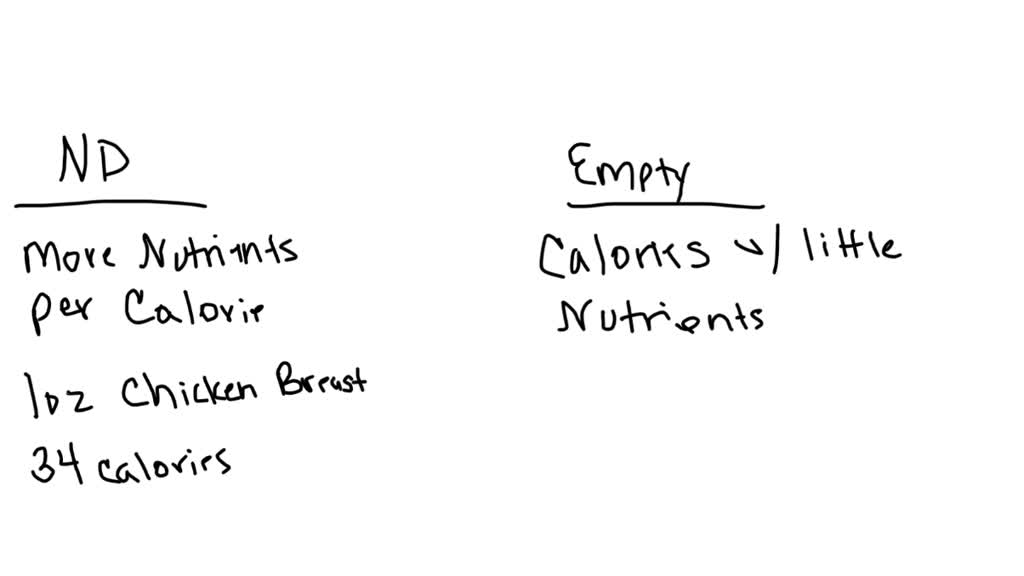 ND
More Nutrients
per Calorie
1oz Chicken Breast
34 calories
Empty
Calories w/ little
Nutrients